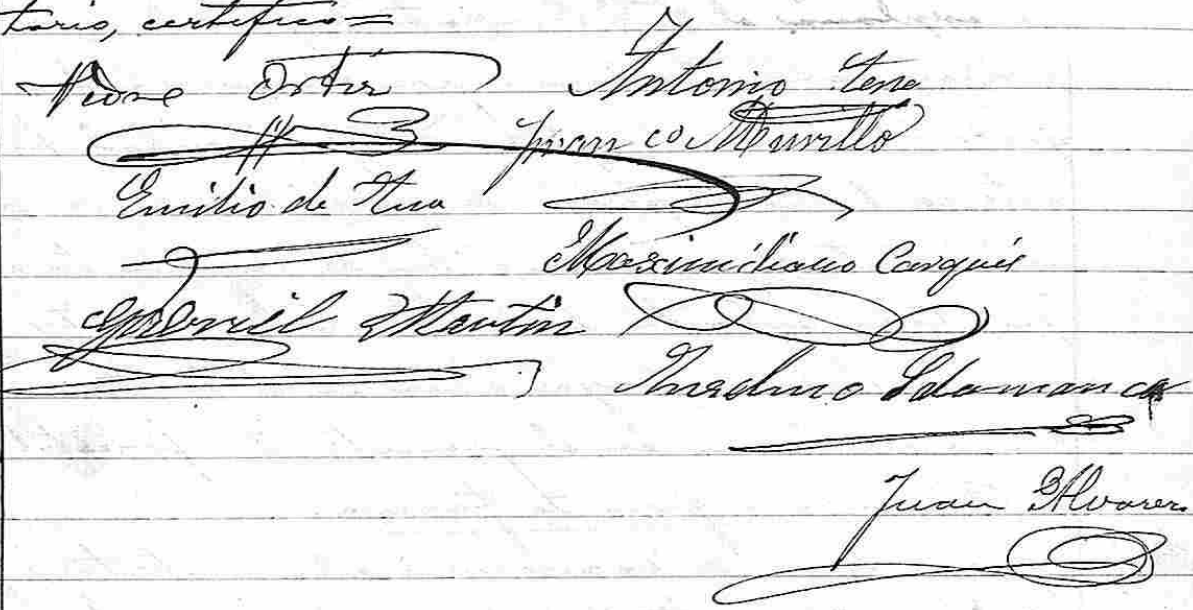 tario, certifico=
Pedro Ortiz Antonio Tena
Juan Co Murillo
Emilio de Tena
Maximiliano Carques
Gabriel Martin
Anselmo Salamanca
Juan Alvarez